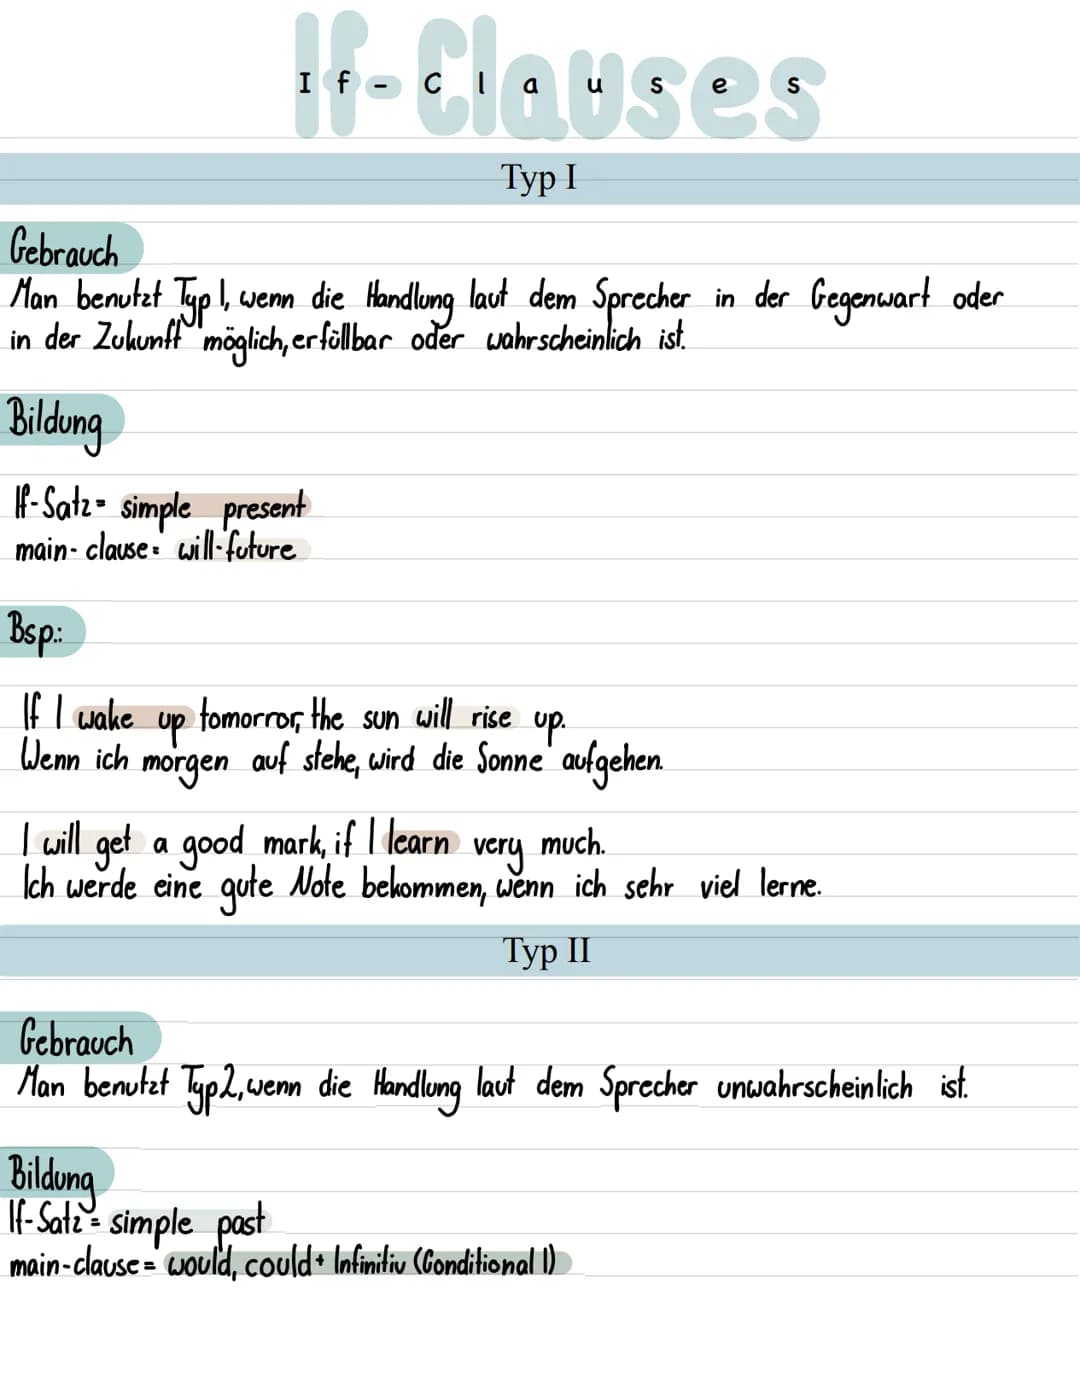 If-Clauses
Typ I
Gebrauch
Man benutzt Typ 1, wenn die Handlung laut dem Sprecher in der Gegenwart oder
in der Zukunft möglich, erfüllbar oder wahrscheinlich ist.
Bildung
If-Satz= simple present
main-clause= will-future
Bsp.:
If I wake up tomorror, the sun will rise up.
Wenn ich morgen auf stehe, wird die Sonne aufgehen.
I will get a good mark, if I learn very much.
Ich werde eine gute Note bekommen, wenn ich sehr viel lerne.
Typ II
Gebrauch
Man benutzt Typ2, wenn die Handlung laut dem Sprecher unwahrscheinlich ist.
Bildung
If-Satz= simple past
main-clause= would, could+ Infinitiv (Conditional I)